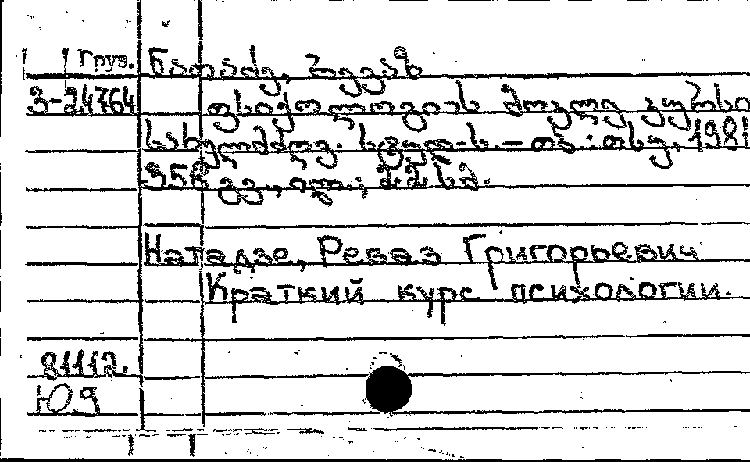 Груз. ნათაძე, რევაზ
3-24764 ფსიქოლოგიის მოკლე კურსი
სახელმძღვ. სტუდ-ს. – თბ.: თსუ, 1981
356 გვ., ილ.; 22 სმ.
Натадзе, Реваз Григорьевич
Краткий курс психологии.
81112.
Ю9